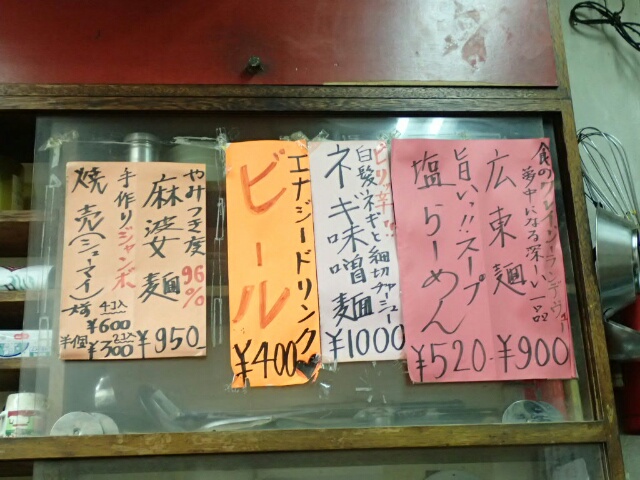 食のグレイプランデヴュー
夢中になる深〜い一品
広東麺
¥900
旨いっ!!スープ
塩らーめん
¥520-
ピリッ辛!!
白髪ネギと細切チャシュー
ネギ味噌麺
¥1000
エナジードリンク
ビール
¥400
やみつき度96%
麻婆麺
¥950-
手作りジャンボ
焼売(シューマイ)
4コ入
¥600
半個
2コ入
¥300